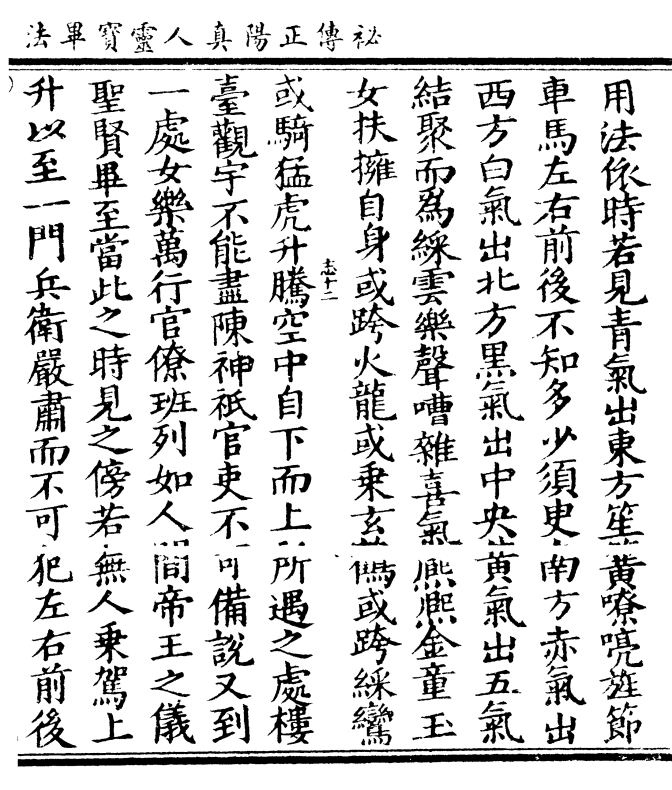 秘傳正陽真人靈寶畢法
用法依時若見青氣出東方笙簧嘹喨旌節
車馬左右前後不知多少須臾南方赤氣出
西方白氣出北方黑氣出中央黃氣出五氣
結聚而爲綵雲樂聲嘈雜喜氣熙熙金童玉
女扶擁自身或跨火龍或乘玄鶴或跨綵鸞
或騎猛虎升騰空中自下而上所遇之處樓
臺觀宇不能盡陳神祇官吏不可備說又到
一處女樂萬行官僚班列如人間帝王之儀
聖賢畢至當此之時見之傍若無人乘駕上
升以至一門兵衛嚴肅而不可犯左右前後
志十二